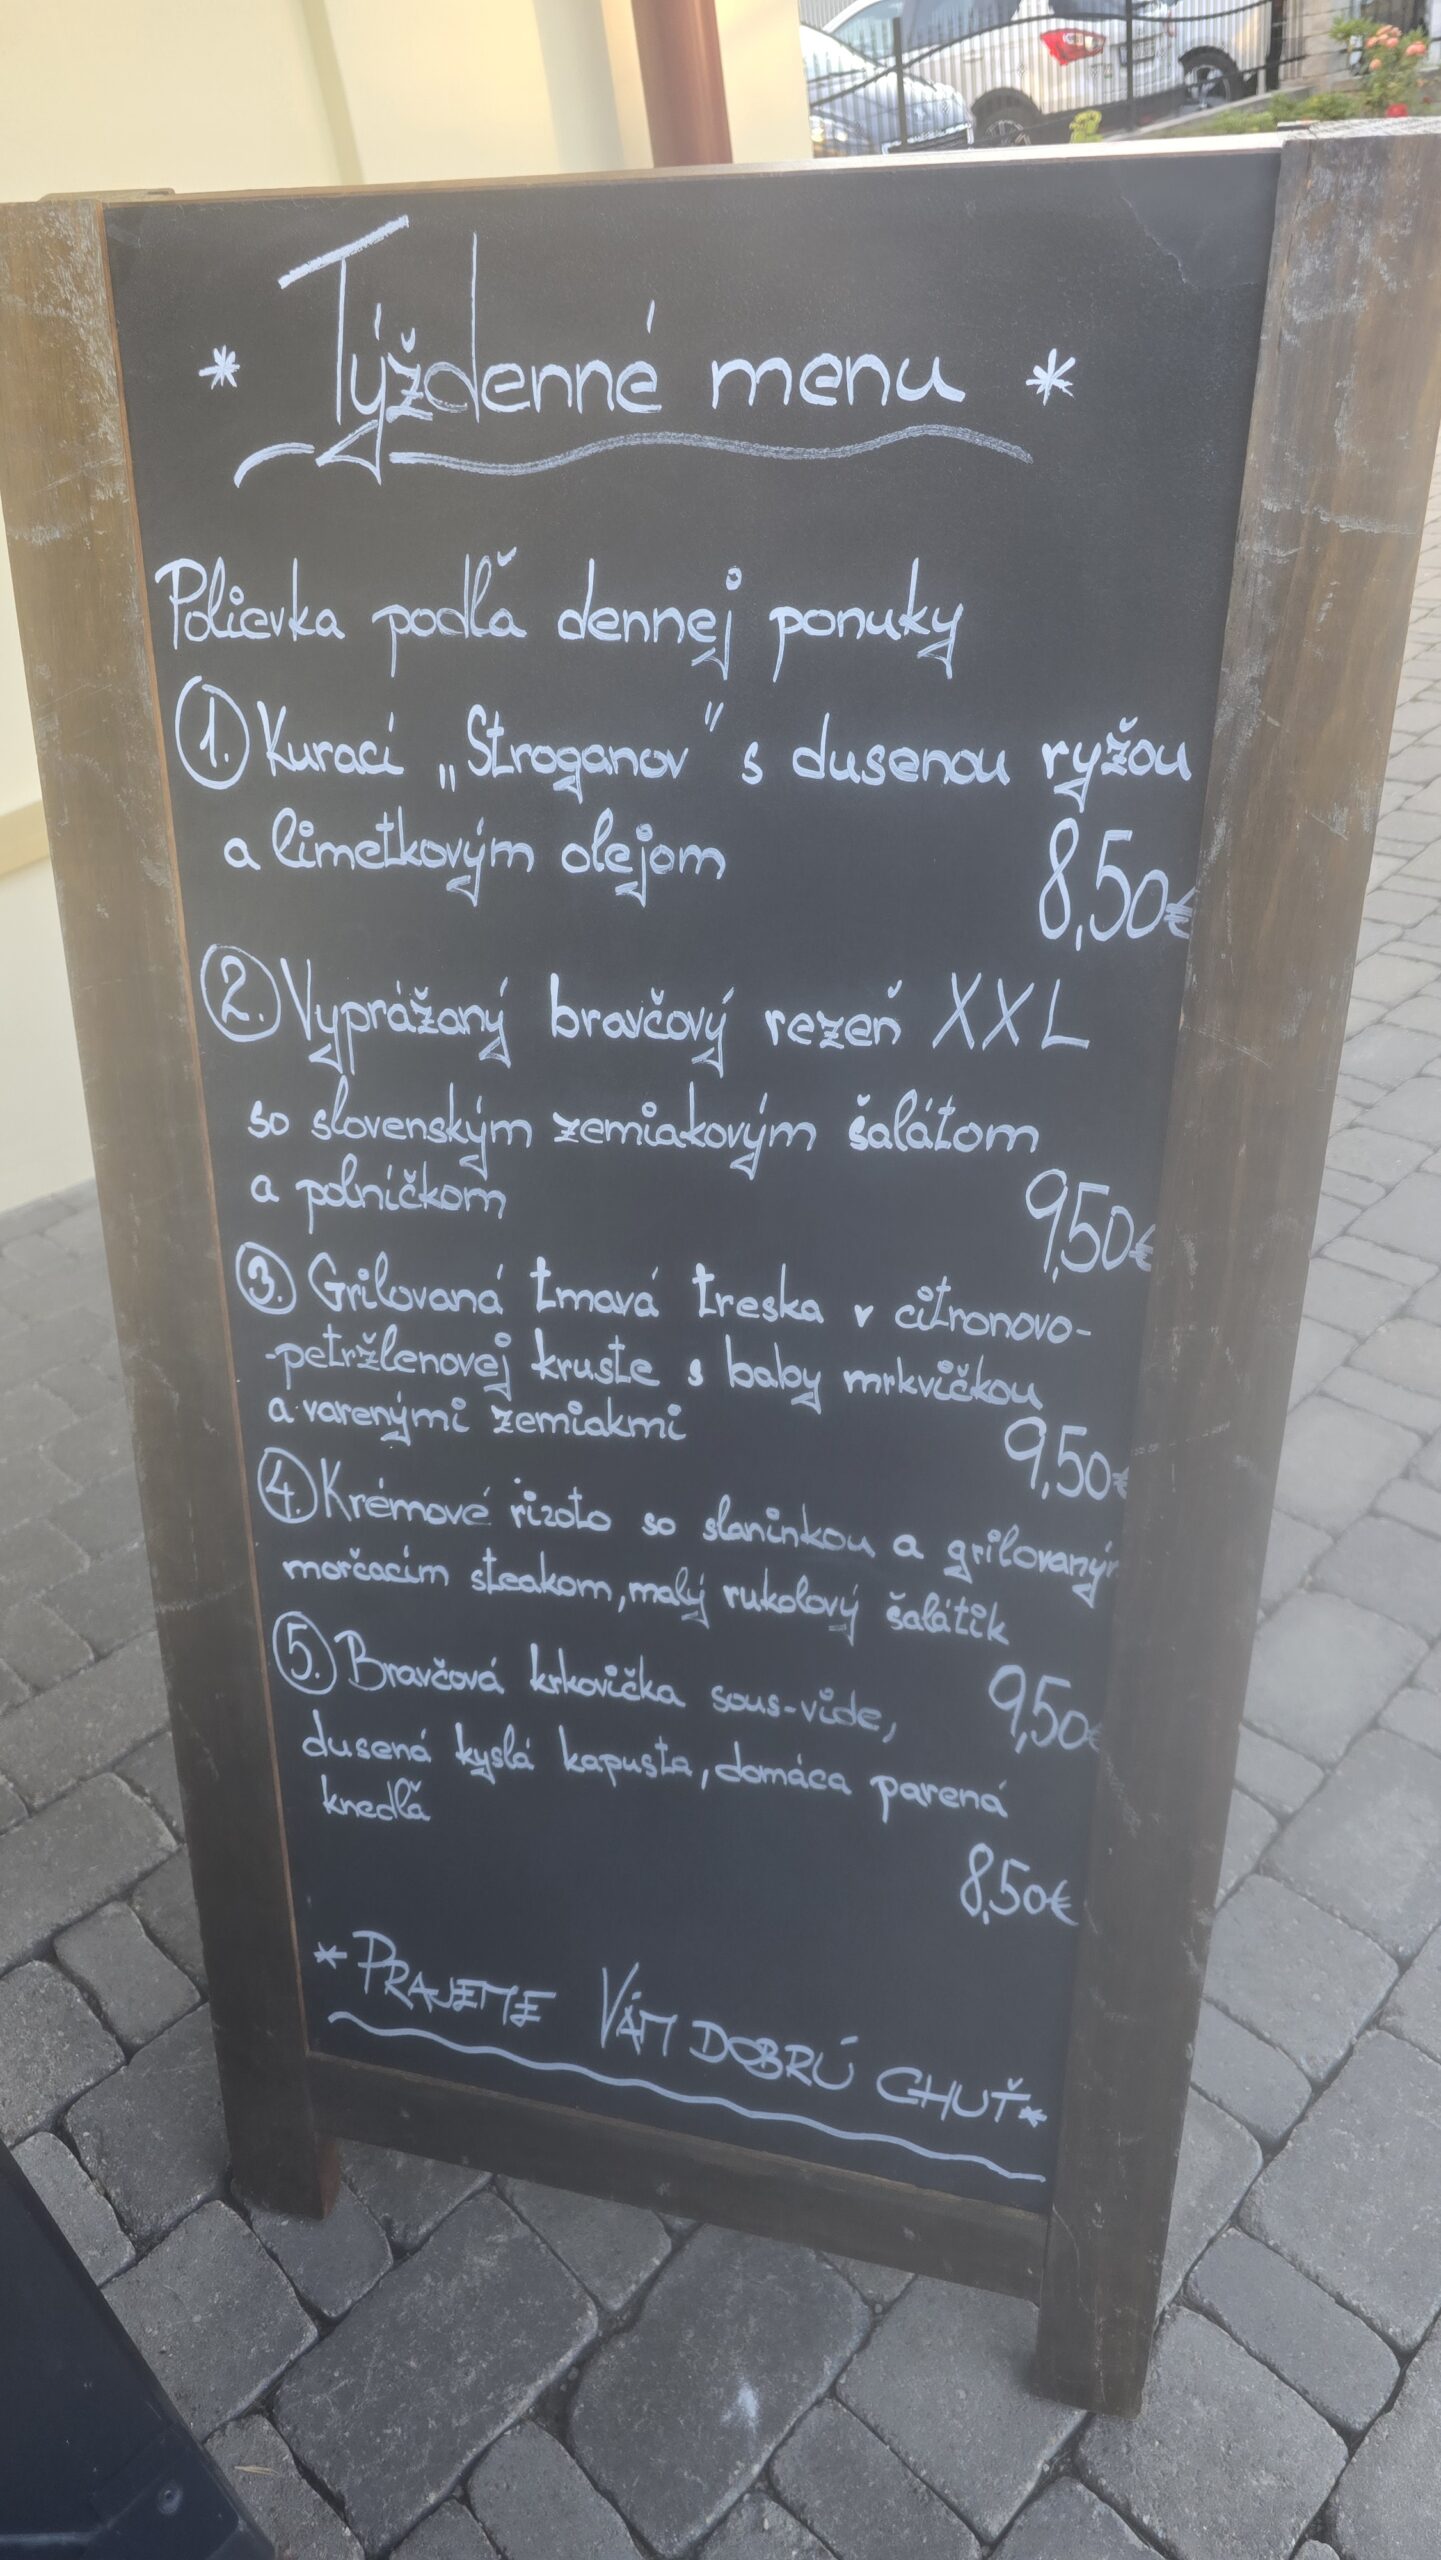 * Týždenné menu *
Polievka podľa dennej ponuky
1. Kurací „Stroganov" s dusenou ryžou
a limetkovým olejom
8,50€
2. Vyprážaný bravčový rezeň XXL
so slovenským zemiakovým šalátom
a polníčkom
9,50€
3. Grilovaná tmavá treska v citronovo-
-petržlenovej kruste s baby mrkvičkou
a varenými zemiakmi
9,50€
4. Krémové rizoto so slaninkou a grilovaným
morčacím steakom, malý rukolový šalátik
9,50€
5. Bravčová krkovička sous-vide,
dusená kyslá kapusta, domáca parená
knedľa
8,50€
*PRAJEME VÁM DOBRÚ CHUŤ*